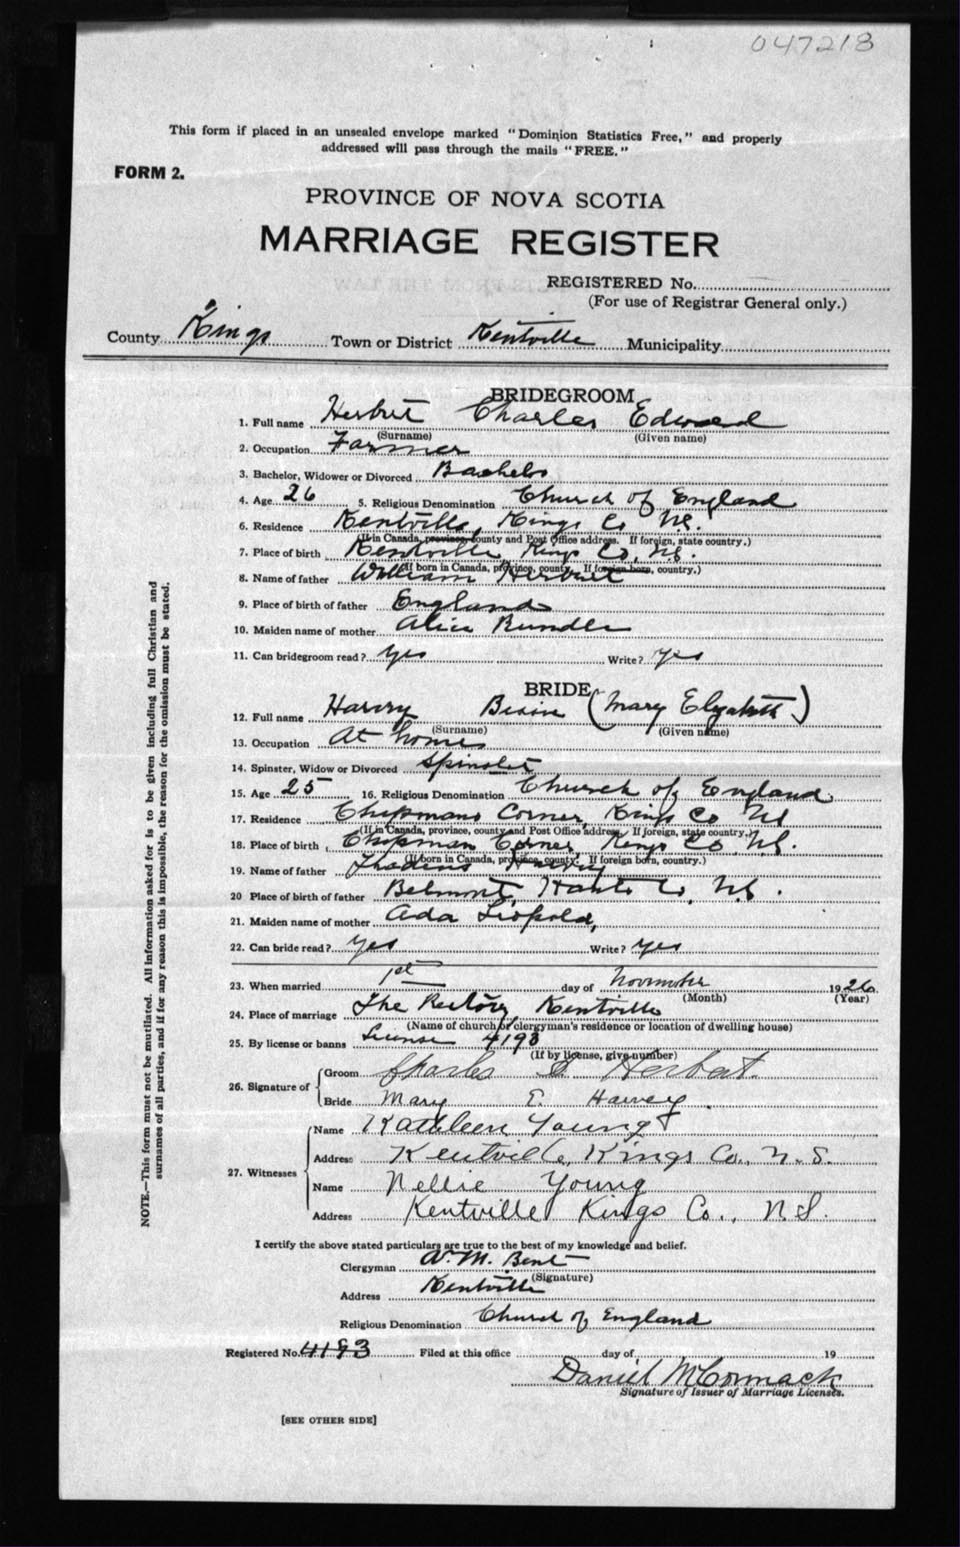 047213
This form if placed in an unsealed envelope marked "Dominion Statistics Free," and properly
addressed will pass through the mails "FREE."
FORM 2.
PROVINCE OF NOVA SCOTIA
MARRIAGE REGISTER
REGISTERED No.
(For use of Registrar General only.)
County Kings Town or District Kentville Municipality
BRIDEGROOM
1. Full name Herbert Charles Edward
(Surname) (Given name)
2. Occupation Farmer
3. Bachelor, Widower or Divorced Bachelor
4. Age 26 5. Religious Denomination Church of England
6. Residence Kentville, Kings Co N.S.
(If in Canada, province, county and Post Office address. If foreign, state country.)
7. Place of birth Kentville Kings Co, N.S.
(If born in Canada, province, county. If foreign born, country.)
8. Name of father William Herbert
9. Place of birth of father England
10. Maiden name of mother Alice Rundle
11. Can bridegroom read? yes Write? yes
BRIDE
12. Full name Harvey (Mary Elizabeth)
(Surname) (Given name)
13. Occupation At home
14. Spinster, Widow or Divorced Spinster
15. Age 25 16. Religious Denomination Church of England
17. Residence Chipmans Corner, Kings Co NS
(If in Canada, province, county and Post Office address. If foreign, state country.)
18. Place of birth Chipman Corner, Kings Co, N.S.
(If born in Canada, province, county. If foreign born, country.)
19. Name of father Harvey
20 Place of birth of father Belmont, Hants Co, N.S.
21. Maiden name of mother Ada Leopold,
22. Can bride read? yes Write? yes
23. When married 1st day of November 1926
(Month) (Year)
24. Place of marriage The Rectory, Kentville
(Name of church or clergyman's residence or location of dwelling house)
25. By license or banns License 4193
(If by license, give number)
26. Signature of Groom Charles E Herbert.
Bride Mary E. Harvey.
27. Witnesses Name Kathleen Young
Address Kentville, Kings Co., N.S.
Name Nellie Young
Address Kentville Kings Co., N.S.
I certify the above stated particulars are true to the best of my knowledge and belief.
Clergyman A. M. Bent
(Signature)
Address Kentville
Religious Denomination Church of England
Registered No. 4193 Filed at this office day of 19
Daniel McCormack
Signature of Issuer of Marriage Licenses.
[SEE OTHER SIDE]
NOTE.—This form must not be mutilated. All information asked for is to be given including full Christian and
surnames of all parties, and if for any reason this is impossible, the reason for the omission must be stated.